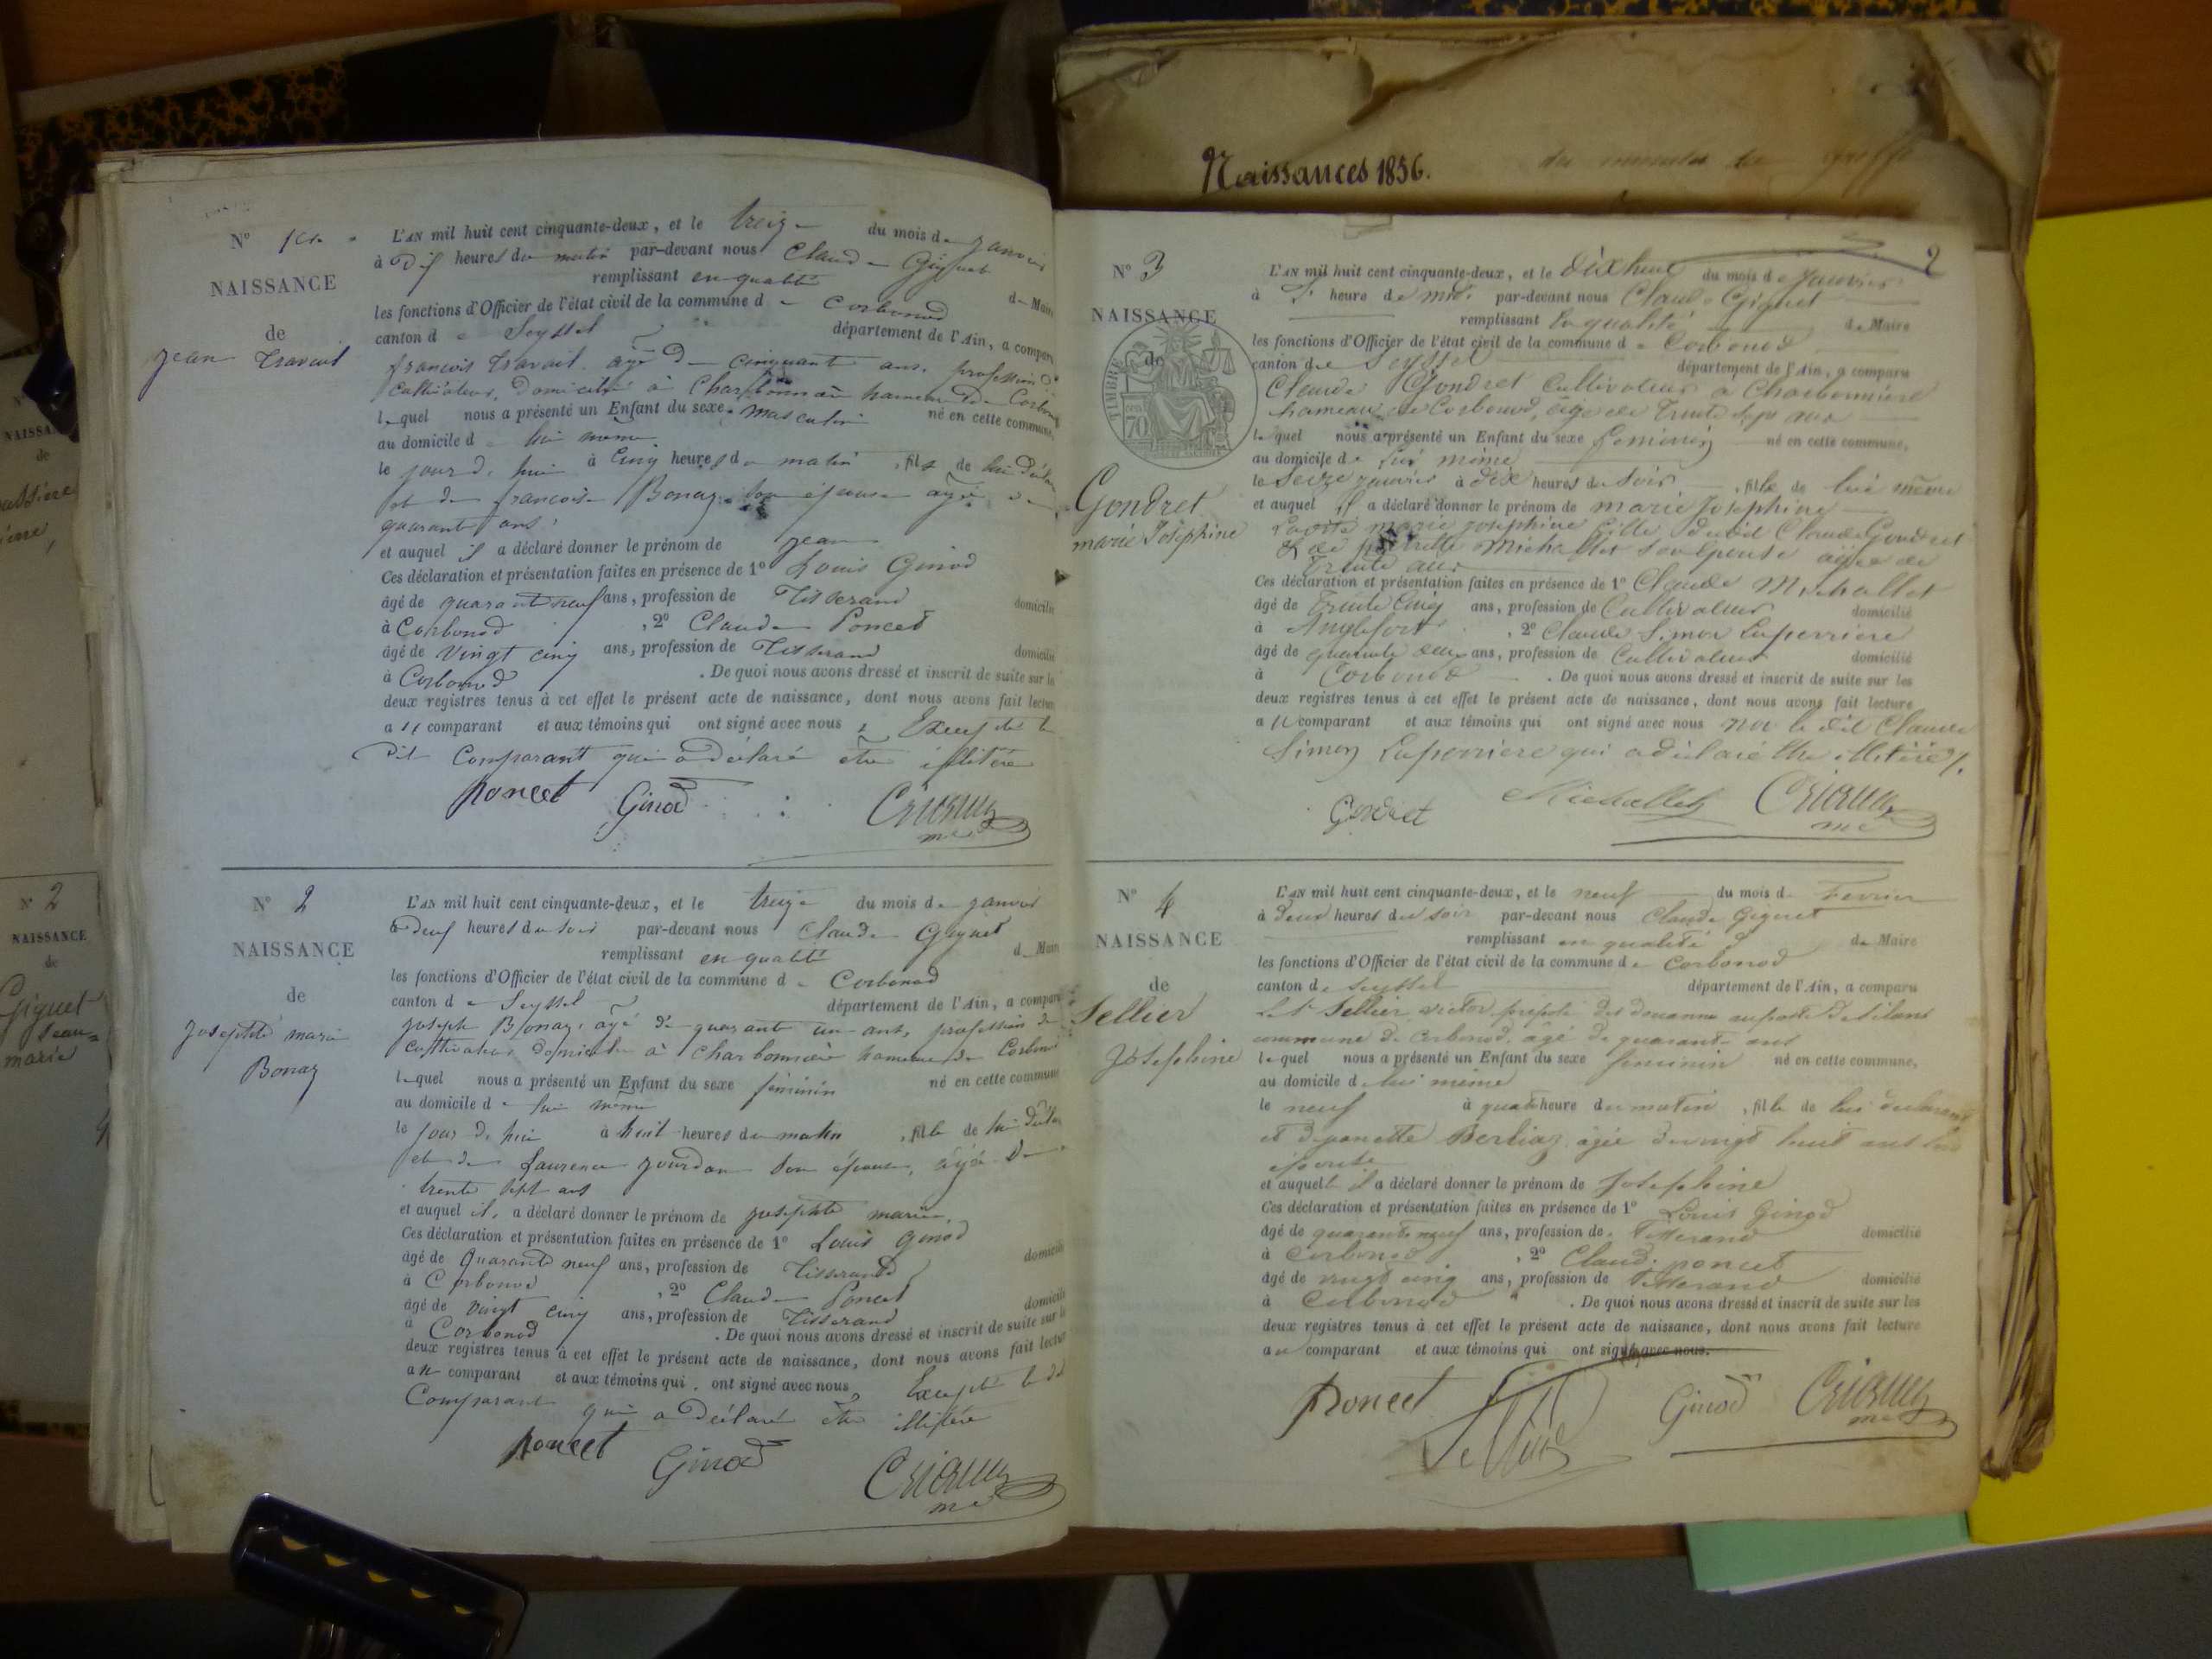 Naissances 1856.
N° 1er
NAISSANCE
de
jean Travail
L'AN mil huit cent cinquante-deux, et le treize du mois de janvier
à Dix heures du matin par-devant nous Claude Giguet
remplissant en qualité de Maire
les fonctions d'Officier de l'état civil de la commune de Corbonod
canton de Seyssel département de l'Ain, a comparu
francois travail agé de cinquante ans, profession de
Cultivateur, Domicilié à Charbonnière hameau de Corbonod
lequel nous a présenté un Enfant du sexe masculin né en cette commune,
au domicile de lui même
le jour d'hui à Cinq heures du matin, fils de lui
et de francoise Bonaz son épouse agée de
quarante ans
et auquel il a déclaré donner le prénom de jean
Ces déclaration et présentation faites en présence de 1° Louis Ginod
âgé de quarante neuf ans, profession de Tisserand domicilié
à Corbonod, 2° Claude Poncet
âgé de vingt cinq ans, profession de Tisserand domicilié
à Corbonod. De quoi nous avons dressé et inscrit de suite sur les
deux registres tenus à cet effet le présent acte de naissance, dont nous avons fait lecture
au comparant et aux témoins qui ont signé avec nous, Excepté le
Dit Comparant qui a déclaré être illitéré
poncet Ginod
N° 2
NAISSANCE
de
Josephte marie
Bonaz
L'AN mil huit cent cinquante-deux, et le treize du mois de janvier
à Deux heures du soir par-devant nous Claude Giguet
remplissant en qualité de Maire
les fonctions d'Officier de l'état civil de la commune de Corbonod
canton de Seyssel département de l'Ain, a comparu
joseph Bonaz, âgé de quarante un ans, profession de
cultivateur domicilié à Charbonnière hameau de Corbonod
lequel nous a présenté un Enfant du sexe féminin né en cette commune
au domicile de lui même
le jour d'hui à huit heures du matin, fille de lui
et de Laurence jourdan son épouse, âgée de
trente sept ans
et auquel il, a déclaré donner le prénom de josephte marie
Ces déclaration et présentation faites en présence de 1° Louis Ginod
âgé de Quarante neuf ans, profession de Tisserand domicilié
à Corbonod, 2° Claude Poncet
âgé de vingt cinq ans, profession de Tisserand domicilié
à Corbonod. De quoi nous avons dressé et inscrit de suite sur les
deux registres tenus à cet effet le présent acte de naissance, dont nous avons fait lecture
au comparant et aux témoins qui ont signé avec nous, Excepté le dit
Comparant qui a déclaré être illitéré
poncet Ginod
2
N° 3
NAISSANCE
de
TIMBRE
70
Gondret
marie Joséphine
L'AN mil huit cent cinquante-deux, et le dix huit du mois de Janvier
à heure de midi par-devant nous Claude Giguet
remplissant la qualité de Maire
les fonctions d'Officier de l'état civil de la commune de Corbonod
canton de Seyssel département de l'Ain, a comparu
Claude Gondret Cultivateur a Charbonniere
hameau de Corbonod, âgé de trente sept ans
lequel nous a présenté un Enfant du sexe feminin né en cette commune,
au domicile de lui même
le Seize janvier à dix heures du soir, fille de lui même
et auquel il a déclaré donner le prénom de marie Joséphine
marie joséphine fille dudit Claude Gondret
Michallet son epouse agée de
Trente ans
Ces déclaration et présentation faites en présence de 1° Claude Michallet
âgé de trente Cinq ans, profession de Cultivateur domicilié
à Anglefort, 2° Claude Simon Laperriere
âgé de quarante deux ans, profession de Cultivateur domicilié
à Corbonod. De quoi nous avons dressé et inscrit de suite sur les
deux registres tenus à cet effet le présent acte de naissance, dont nous avons fait lecture
au comparant et aux témoins qui ont signé avec nous non le dit Claude
Simon Laperriere qui a déclaré être illitéré
Gondret Michallet
N° 4
NAISSANCE
de
Sellier
Josephine
L'AN mil huit cent cinquante-deux, et le neuf du mois de Fevrier
à deux heures du soir par-devant nous Claude Giguet
remplissant en qualité de Maire
les fonctions d'Officier de l'état civil de la commune de Corbonod
canton de Seyssel département de l'Ain, a comparu
Le Sr Sellier victor préposé des douanne au poste de
commune de Corbonod, âgé de quarante ans
lequel nous a présenté un Enfant du sexe feminin né en cette commune,
au domicile de lui même
le neuf à quatre heure du matin, fille de lui declarant
et de Berliaz, agée de vingt huit ans son
épouse
et auquel il a déclaré donner le prénom de Josephine
Ces déclaration et présentation faites en présence de 1° Louis Ginod
âgé de quarante neuf ans, profession de Tisserand domicilié
à Corbonod, 2° Claude poncet
âgé de vingt cinq ans, profession de Tisserand domicilié
à Corbonod. De quoi nous avons dressé et inscrit de suite sur les
deux registres tenus à cet effet le présent acte de naissance, dont nous avons fait lecture
au comparant et aux témoins qui ont signé avec nous.
poncet Sellier Ginod
N° 2
NAISSANCE
de
Giguet
Jean=
marie